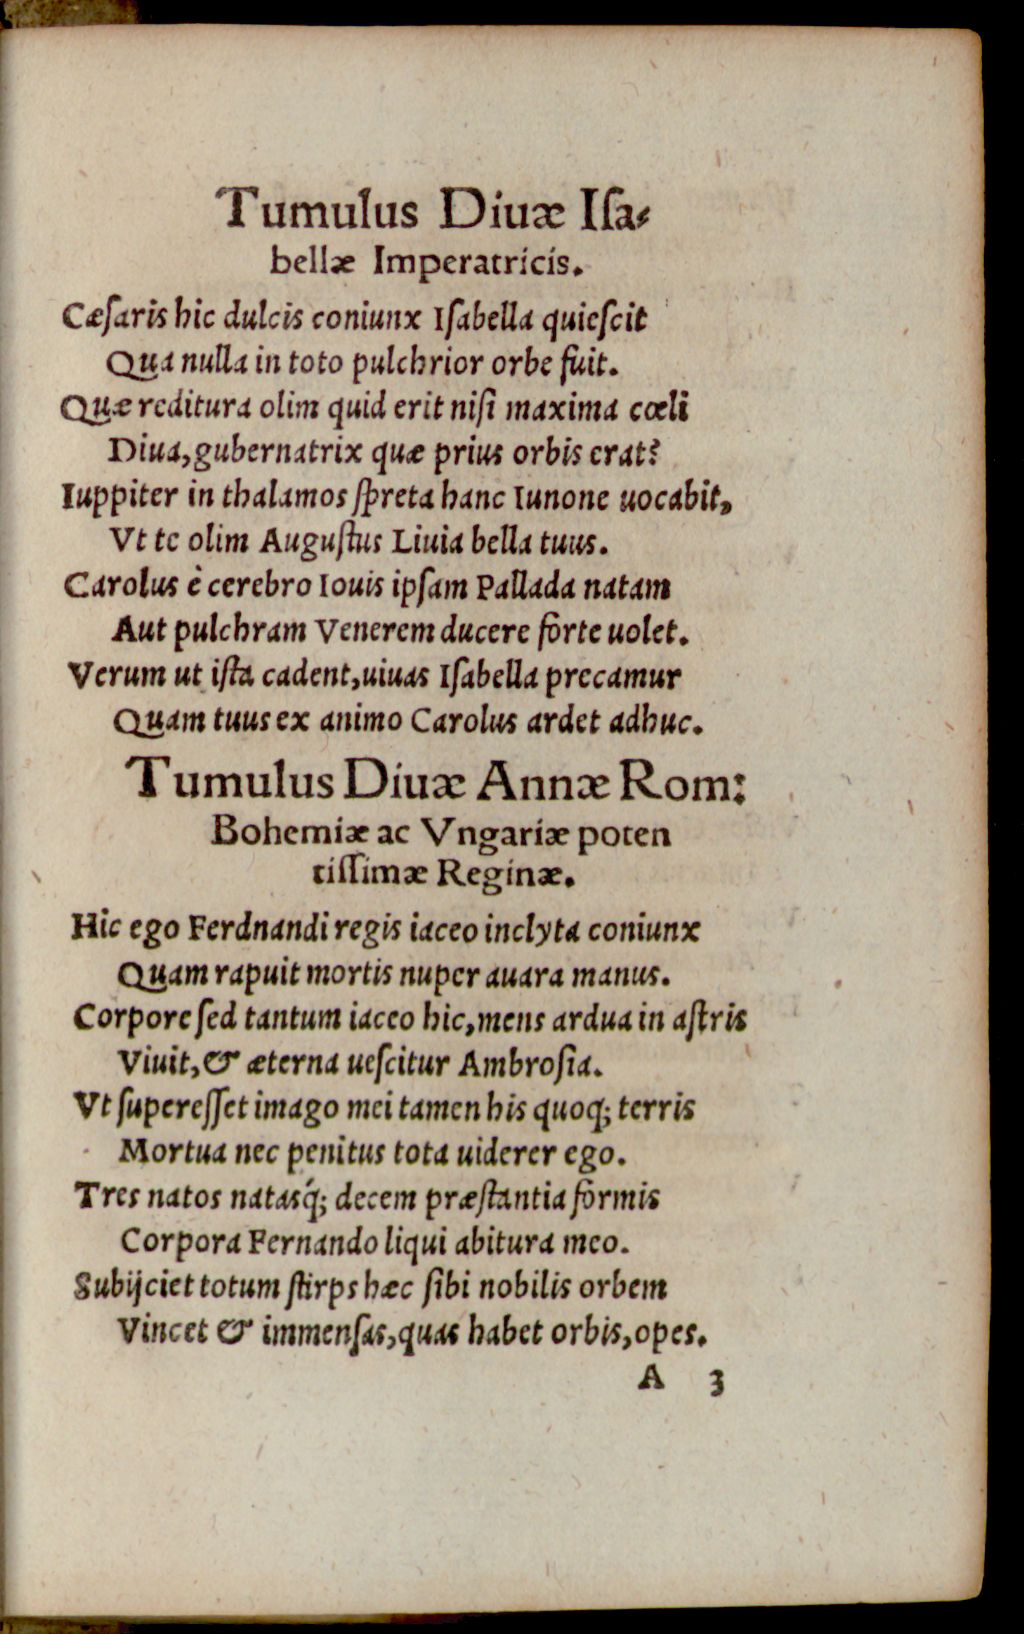 Tumulus Diuæ Iſa-
bellæ Imperatricis.
Cæſaris hic dulcis coniunx Iſabella quieſcit
Qua nulla in toto pulchrior orbe fuit.
Quæ reditura olim quid erit niſi maxima cœli
Diua, gubernatrix quæ prius orbis erat?
Iuppiter in thalamos ſpreta hanc Iunone uocabit,
Vt te olim Auguſtus Liuia bella tuus.
Carolus è cerebro Iouis ipſam Pallada natam
Aut pulchram Venerem ducere forte uolet.
Verum ut iſta cadent, uiuas Iſabella precamur
Quam tuus ex animo Carolus ardet adhuc.
Tumulus Diuæ Annæ Rom:
Bohemiæ ac Vngariæ poten
tiſſimæ Reginæ.
Hic ego Ferdnandi regis iaceo inclyta coniunx
Quam rapuit mortis nuper auara manus.
Corpore ſed tantum iaceo hic, mens ardua in aſtris
Viuit, & æterna ueſcitur Ambroſia.
Vt ſupereſſet imago mei tamen his quoq; terris
Mortua nec penitus tota uiderer ego.
Tres natos natasq́; decem præſtantia formis
Corpora Fernando liqui abitura meo.
Subijciet totum ſtirps hæc ſibi nobilis orbem
Vincet & immenſas, quas habet orbis, opes.
A 3